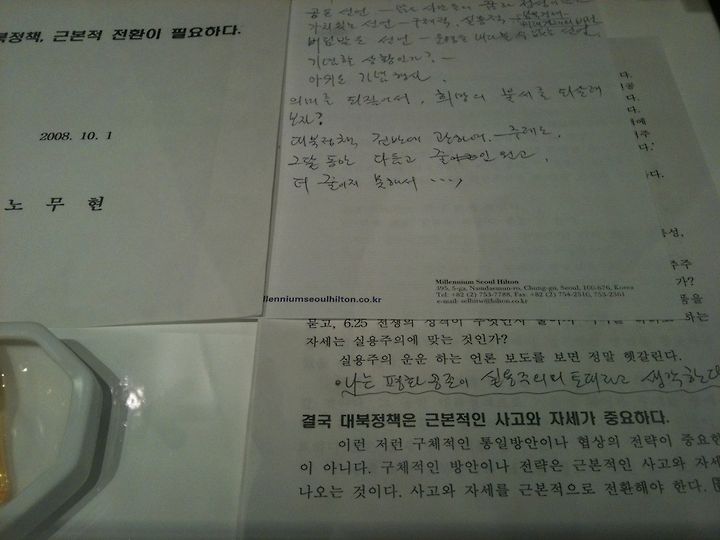 북정책, 근본적 전환이 필요하다.
2008. 10. 1
노 무 현
공든 선언
가치있는 선언 - 구체적, 실용적
버림받은 선언
기념할 상황인가? -
아쉬운 기념행사.
의미를 되짚어서, 희망의 불씨를 되살려
보자?
대북정책 전반에 관하여. - 주제는,
그달 동안 다듬고 줄인 원고,
더 줄이지 못해서 ....,
다.
다.
다.
에
주
다.'
다.
성,
주주
가?
똥을
하는
Millennium Seoul Hilton
395, 5-ga, Namdaemun-ro, Chung-gu, Seoul, 100-676, Korea
Tel: +82 (2) 753-7788, Fax: +82 (2) 754-2510, 753-2361
e-mail: selhitw@hilton.co.kr
llenniumseoulhilton.co.kr
묻고, 6.25 전쟁의 성격이 무엇인지
자세는 실용주의에 맞는 것인가?
실용주의 운운 하는 언론 보도를 보면 정말 헷갈린다.
나는 평화공존이 실용주의의 토대라고 생각한다
결국 대북정책은 근본적인 사고와 자세가 중요하다.
이런 저런 구체적인 통일방안이나 협상의 전략이 중요한
이 아니다. 구체적인 방안이나 전략은 근본적인 사고와 자세
나오는 것이다. 사고와 자세를 근본적으로 전환해야 한다.